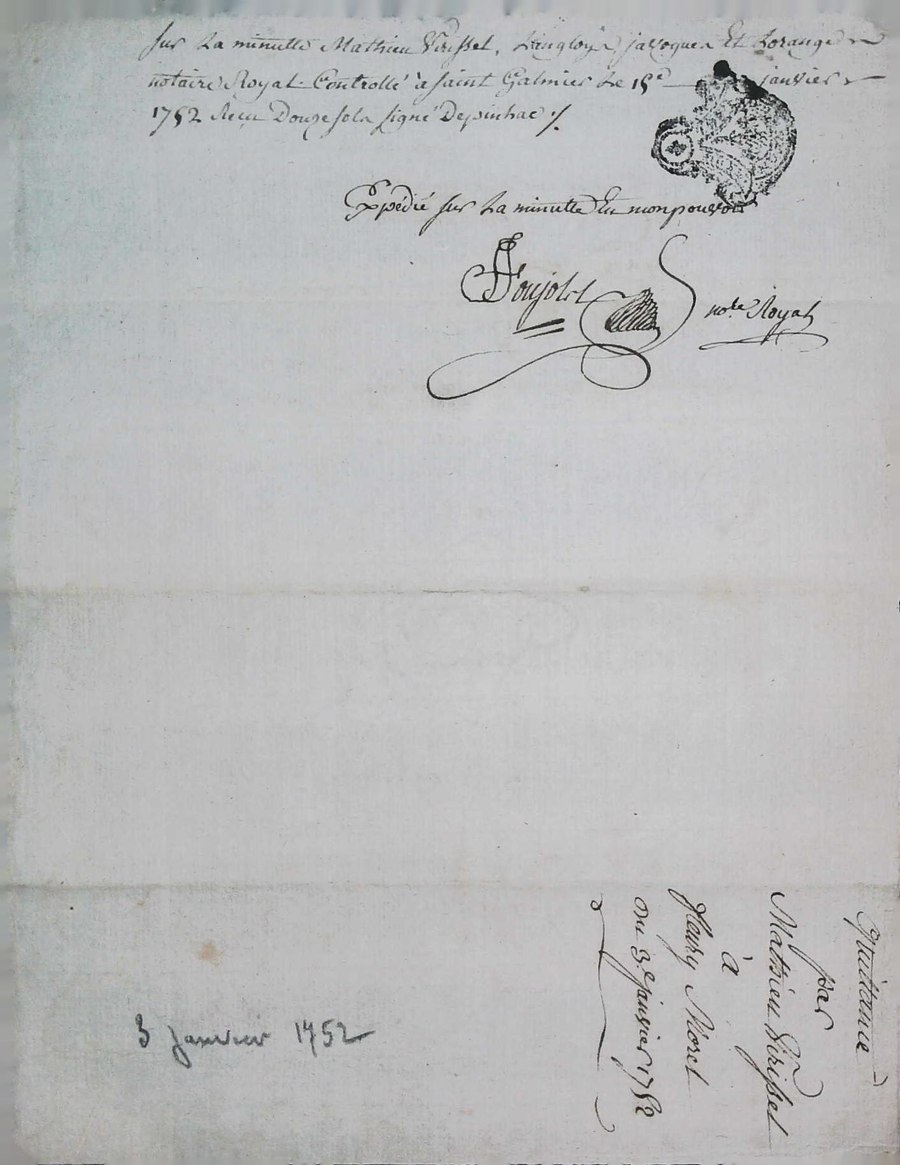 sur La minutte Mathieu Virissel, Langloy javogues Et Lorange
notaire Royal Controllé à saint Galmier Le 15e janvier
1752 Recu Douze sols signé Depinhac /.
Expédié sur La minutte En mon pouvoir
Poujolet
nore Royal
Quittance
par
Mathieu Virissel
à
fleury Moret
du 3e janvier 1752
3 janvier 1752